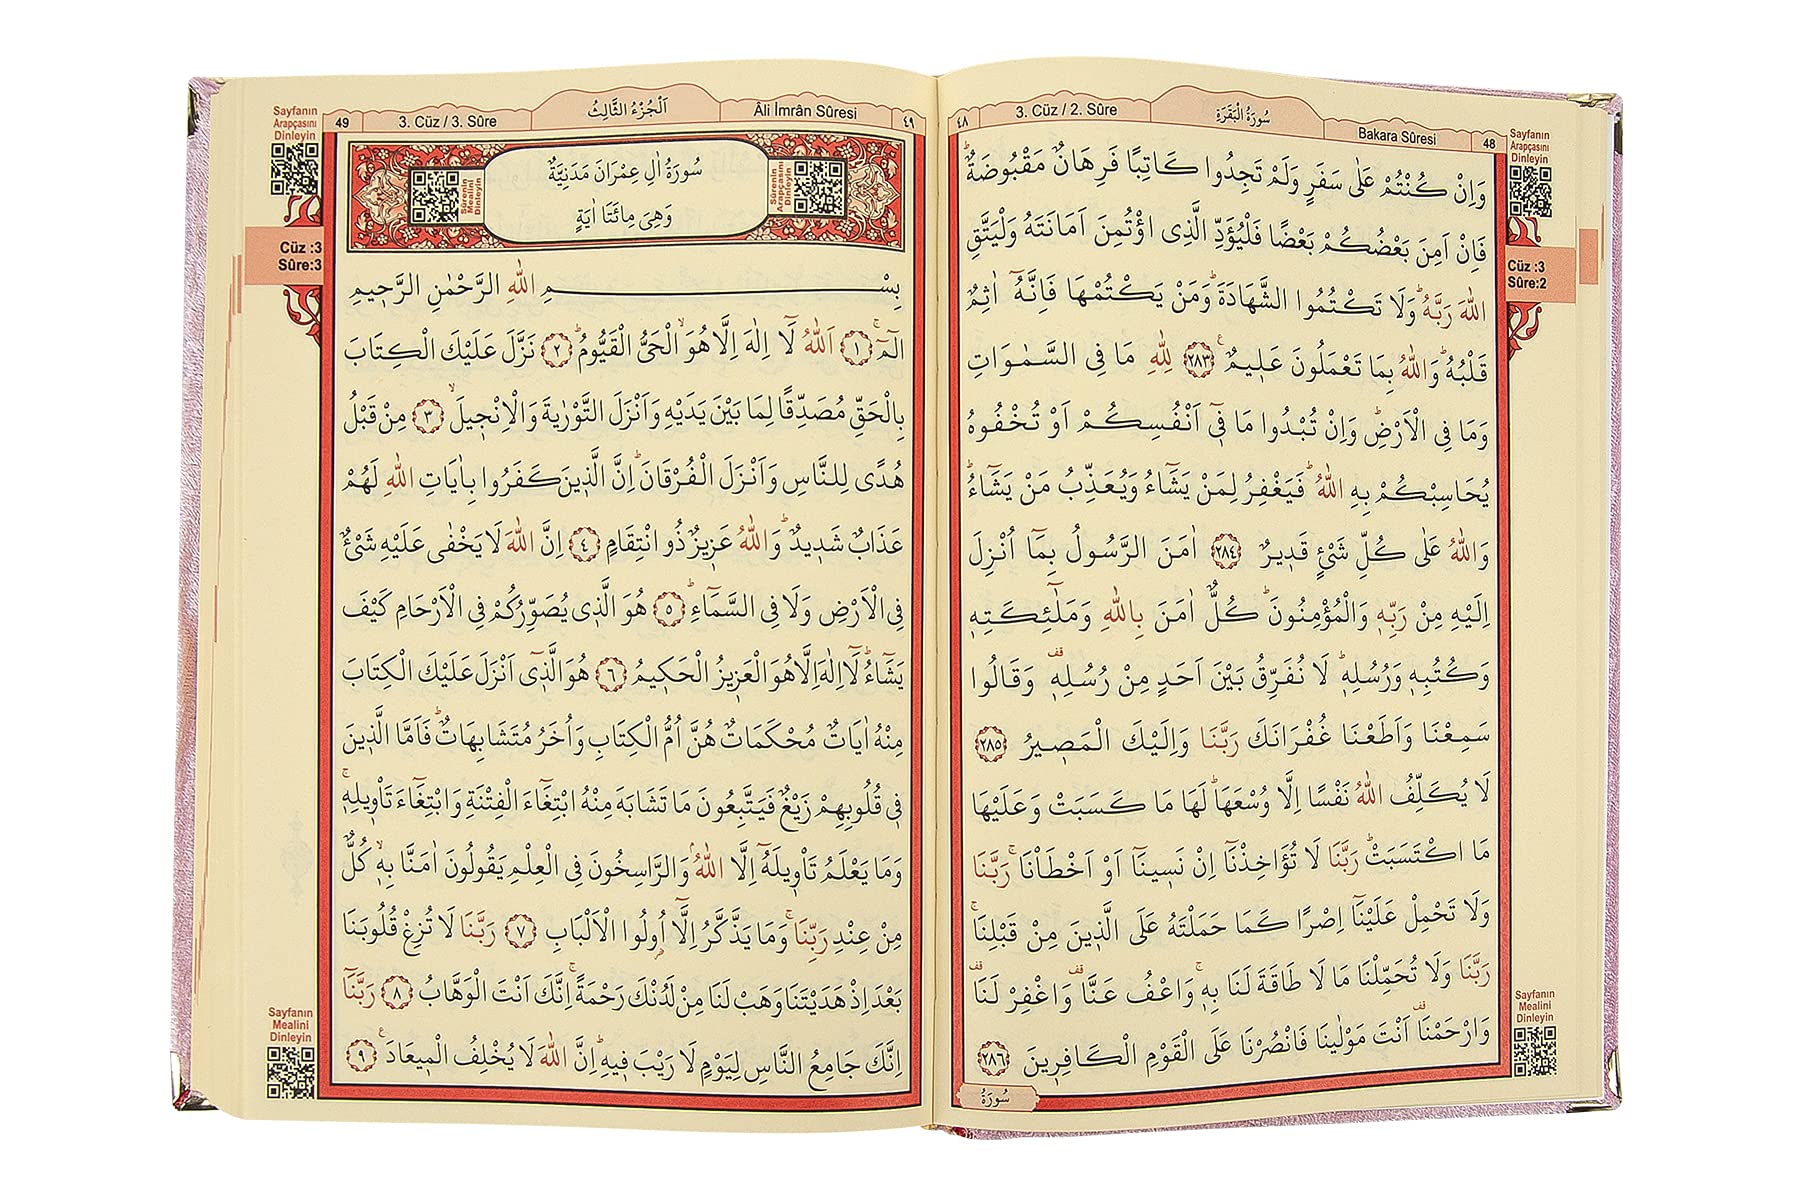 Sayfanın
Arapçasını
Dinleyin
48
Bakara Sûresi
سُورَةُ الْبَقَرَةِ
3. Cüz / 2. Sûre
٤٨
Cüz :3
Sûre:2
وَاِنْ كُنْتُمْ عَلٰى سَفَرٍ وَلَمْ تَجِدُوا كَاتِبًا فَرِهَانٌ مَقْبُوضَةٌۜ
فَاِنْ اَمِنَ بَعْضُكُمْ بَعْضًا فَلْيُؤَدِّ الَّذِى اؤْتُمِنَ اَمَانَتَهُ وَلْيَتَّقِ
اللّٰهَ رَبَّهُۜ وَلَا تَكْتُمُوا الشَّهَادَةَۜ وَمَنْ يَكْتُمْهَا فَاِنَّهُٓ اٰثِمٌ
قَلْبُهُۜ وَاللّٰهُ بِمَا تَعْمَلُونَ عَلٖيمٌ ﴿٢٨٣﴾ لِلّٰهِ مَا فِى السَّمٰوَاتِ
وَمَا فِى الْاَرْضِۜ وَاِنْ تُبْدُوا مَا فٖٓى اَنْفُسِكُمْ اَوْ تُخْفُوهُ
يُحَاسِبْكُمْ بِهِ اللّٰهُۜ فَيَغْفِرُ لِمَنْ يَشَٓاءُ وَيُعَذِّبُ مَنْ يَشَٓاءُۜ
وَاللّٰهُ عَلٰى كُلِّ شَىْءٍ قَدٖيرٌ ﴿٢٨٤﴾ اٰمَنَ الرَّسُولُ بِمَٓا اُنْزِلَ
اِلَيْهِ مِنْ رَبِّهٖ وَالْمُؤْمِنُونَۜ كُلٌّ اٰمَنَ بِاللّٰهِ وَمَلٰٓئِكَتِهٖ
وَكُتُبِهٖ وَرُسُلِهٖۜ لَا نُفَرِّقُ بَيْنَ اَحَدٍ مِنْ رُسُلِهٖ وَقَالُوا
سَمِعْنَا وَاَطَعْنَا غُفْرَانَكَ رَبَّنَا وَاِلَيْكَ الْمَصٖيرُ ﴿٢٨٥﴾
لَا يُكَلِّفُ اللّٰهُ نَفْسًا اِلَّا وُسْعَهَاۜ لَهَا مَا كَسَبَتْ وَعَلَيْهَا
مَا اكْتَسَبَتْۜ رَبَّنَا لَا تُؤَاخِذْنَٓا اِنْ نَسٖينَٓا اَوْ اَخْطَاْنَاۚ رَبَّنَا
وَلَا تَحْمِلْ عَلَيْنَٓا اِصْرًا كَمَا حَمَلْتَهُ عَلَى الَّذٖينَ مِنْ قَبْلِنَاۚ
رَبَّنَا وَلَا تُحَمِّلْنَا مَا لَا طَاقَةَ لَنَا بِهٖۚ وَاعْفُ عَنَّا وَاغْفِرْ لَنَا
وَارْحَمْنَا اَنْتَ مَوْلٰينَا فَانْصُرْنَا عَلَى الْقَوْمِ الْكَافِرٖينَ ﴿٢٨٦﴾
سُورَةُ
Sayfanın
Mealini
Dinleyin
٤٩
Âli İmrân Sûresi
اَلْجُزْءُ الثَّالِثُ
3. Cüz / 3. Sûre
49
Sayfanın
Arapçasını
Dinleyin
Cüz :3
Sûre:3
Sûrenin
Arapçasını
Dinleyin
سُورَةُ اٰلِ عِمْرٰانَ مَدَنِيَّةٌ
وَهِىَ مِائَتَا اٰيَةٍ
Sûrenin
Mealini
Dinleyin
بِسْمِ اللّٰهِ الرَّحْمٰنِ الرَّحٖيمِ
الٓمٓۚ ﴿١﴾ اَللّٰهُ لَٓا اِلٰهَ اِلَّا هُوَۙ الْحَىُّ الْقَيُّومُۜ ﴿٢﴾ نَزَّلَ عَلَيْكَ الْكِتَابَ
بِالْحَقِّ مُصَدِّقًا لِمَا بَيْنَ يَدَيْهِ وَاَنْزَلَ التَّوْرٰيةَ وَالْاِنْجٖيلَۙ ﴿٣﴾ مِنْ قَبْلُ
هُدًى لِلنَّاسِ وَاَنْزَلَ الْفُرْقَانَۜ اِنَّ الَّذٖينَ كَفَرُوا بِاٰيَاتِ اللّٰهِ لَهُمْ
عَذَابٌ شَدٖيدٌۜ وَاللّٰهُ عَزٖيزٌ ذُو انْتِقَامٍ ﴿٤﴾ اِنَّ اللّٰهَ لَا يَخْفٰى عَلَيْهِ شَىْءٌ
فِى الْاَرْضِ وَلَا فِى السَّمَٓاءِۜ ﴿٥﴾ هُوَ الَّذٖى يُصَوِّرُكُمْ فِى الْاَرْحَامِ كَيْفَ
يَشَٓاءُۜ لَٓا اِلٰهَ اِلَّا هُوَ الْعَزٖيزُ الْحَكٖيمُ ﴿٦﴾ هُوَ الَّذٖٓى اَنْزَلَ عَلَيْكَ الْكِتَابَ
مِنْهُ اٰيَاتٌ مُحْكَمَاتٌ هُنَّ اُمُّ الْكِتَابِ وَاُخَرُ مُتَشَابِهَاتٌۜ فَاَمَّا الَّذٖينَ
فٖى قُلُوبِهِمْ زَيْغٌ فَيَتَّبِعُونَ مَا تَشَابَهَ مِنْهُ ابْتِغَٓاءَ الْفِتْنَةِ وَابْتِغَٓاءَ تَاْوٖيلِهٖۚ
وَمَا يَعْلَمُ تَاْوٖيلَهُٓ اِلَّا اللّٰهُۢ وَالرَّاسِخُونَ فِى الْعِلْمِ يَقُولُونَ اٰمَنَّا بِهٖۙ كُلٌّ
مِنْ عِنْدِ رَبِّنَاۚ وَمَا يَذَّكَّرُ اِلَّٓا اُولُوا الْاَلْبَابِ ﴿٧﴾ رَبَّنَا لَا تُزِغْ قُلُوبَنَا
بَعْدَ اِذْ هَدَيْتَنَا وَهَبْ لَنَا مِنْ لَدُنْكَ رَحْمَةًۚ اِنَّكَ اَنْتَ الْوَهَّابُ ﴿٨﴾ رَبَّنَٓا
اِنَّكَ جَامِعُ النَّاسِ لِيَوْمٍ لَا رَيْبَ فٖيهِۜ اِنَّ اللّٰهَ لَا يُخْلِفُ الْمٖيعَادَ ﴿٩﴾
Sayfanın
Mealini
Dinleyin